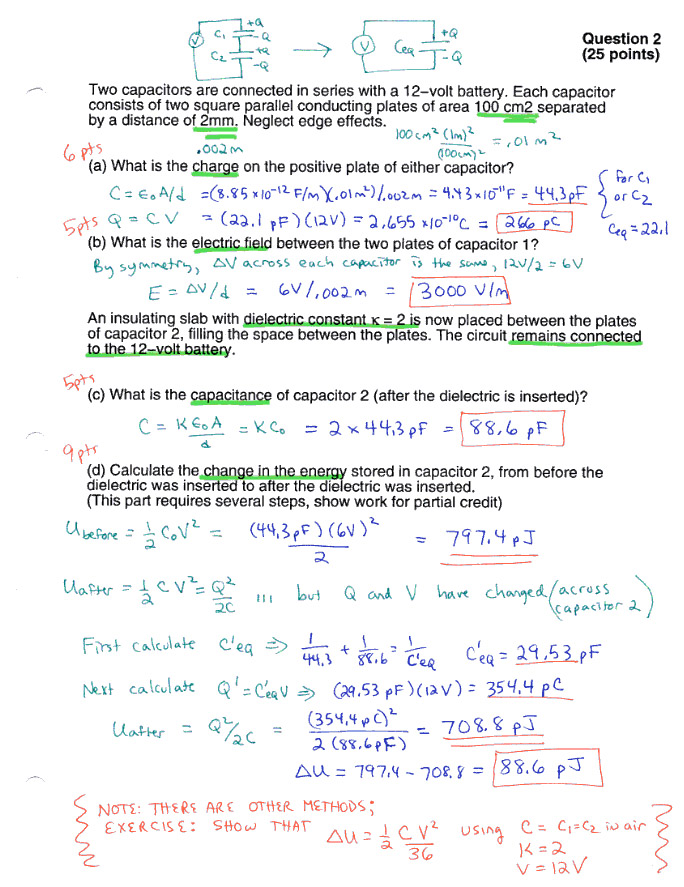 +Q
C1 -Q
V
C2 +Q
-Q
→
V Ceq +Q
-Q
Question 2
(25 points)
Two capacitors are connected in series with a 12-volt battery. Each capacitor
consists of two square parallel conducting plates of area 100 cm2 separated
by a distance of 2mm. Neglect edge effects.
100cm² (1m)²/(100cm)² = .01 m²
.002m
6 pts
(a) What is the charge on the positive plate of either capacitor?
C = ε₀A/d = (8.85 x10⁻¹² F/m)(.01m²)/.002m = 4.43x10⁻¹¹F = 44.3pF { for C1 or C2
5pts Q = C V = (22.1 pF)(12V) = 2.655 x10⁻¹⁰C = 266 pC Ceq = 22.1
(b) What is the electric field between the two plates of capacitor 1?
By symmetry, ΔV across each capacitor is the same, 12V/2 = 6V
E = ΔV/d = 6V/.002m = 3000 V/m
An insulating slab with dielectric constant κ = 2 is now placed between the plates
of capacitor 2, filling the space between the plates. The circuit remains connected
to the 12-volt battery.
5pts
(c) What is the capacitance of capacitor 2 (after the dielectric is inserted)?
C = Kε₀A/d = KC₀ = 2 x 44.3 pF = 88.6 pF
9ptr
(d) Calculate the change in the energy stored in capacitor 2, from before the
dielectric was inserted to after the dielectric was inserted.
(This part requires several steps, show work for partial credit)
Ubefore = 1/2 C₀V² = (44.3pF)(6V)²/2 = 797.4 pJ
Uafter = 1/2 CV² = Q²/2C ... but Q and V have changed (across capacitor 2)
First calculate C'eq ⇒ 1/44.3 + 1/88.6 = 1/C'eq C'eq = 29.53 pF
Next calculate Q' = C'eqV ⇒ (29.53 pF)(12V) = 354.4 pC
Uafter = Q²/2C = (354.4 pC)²/2(88.6pF) = 708.8 pJ
ΔU = 797.4 - 708.8 = 88.6 pJ
NOTE: THERE ARE OTHER METHODS;
EXERCISE: SHOW THAT ΔU = 1/2 CV²/36 USING C = C1=C2 in air
K = 2
V = 12V